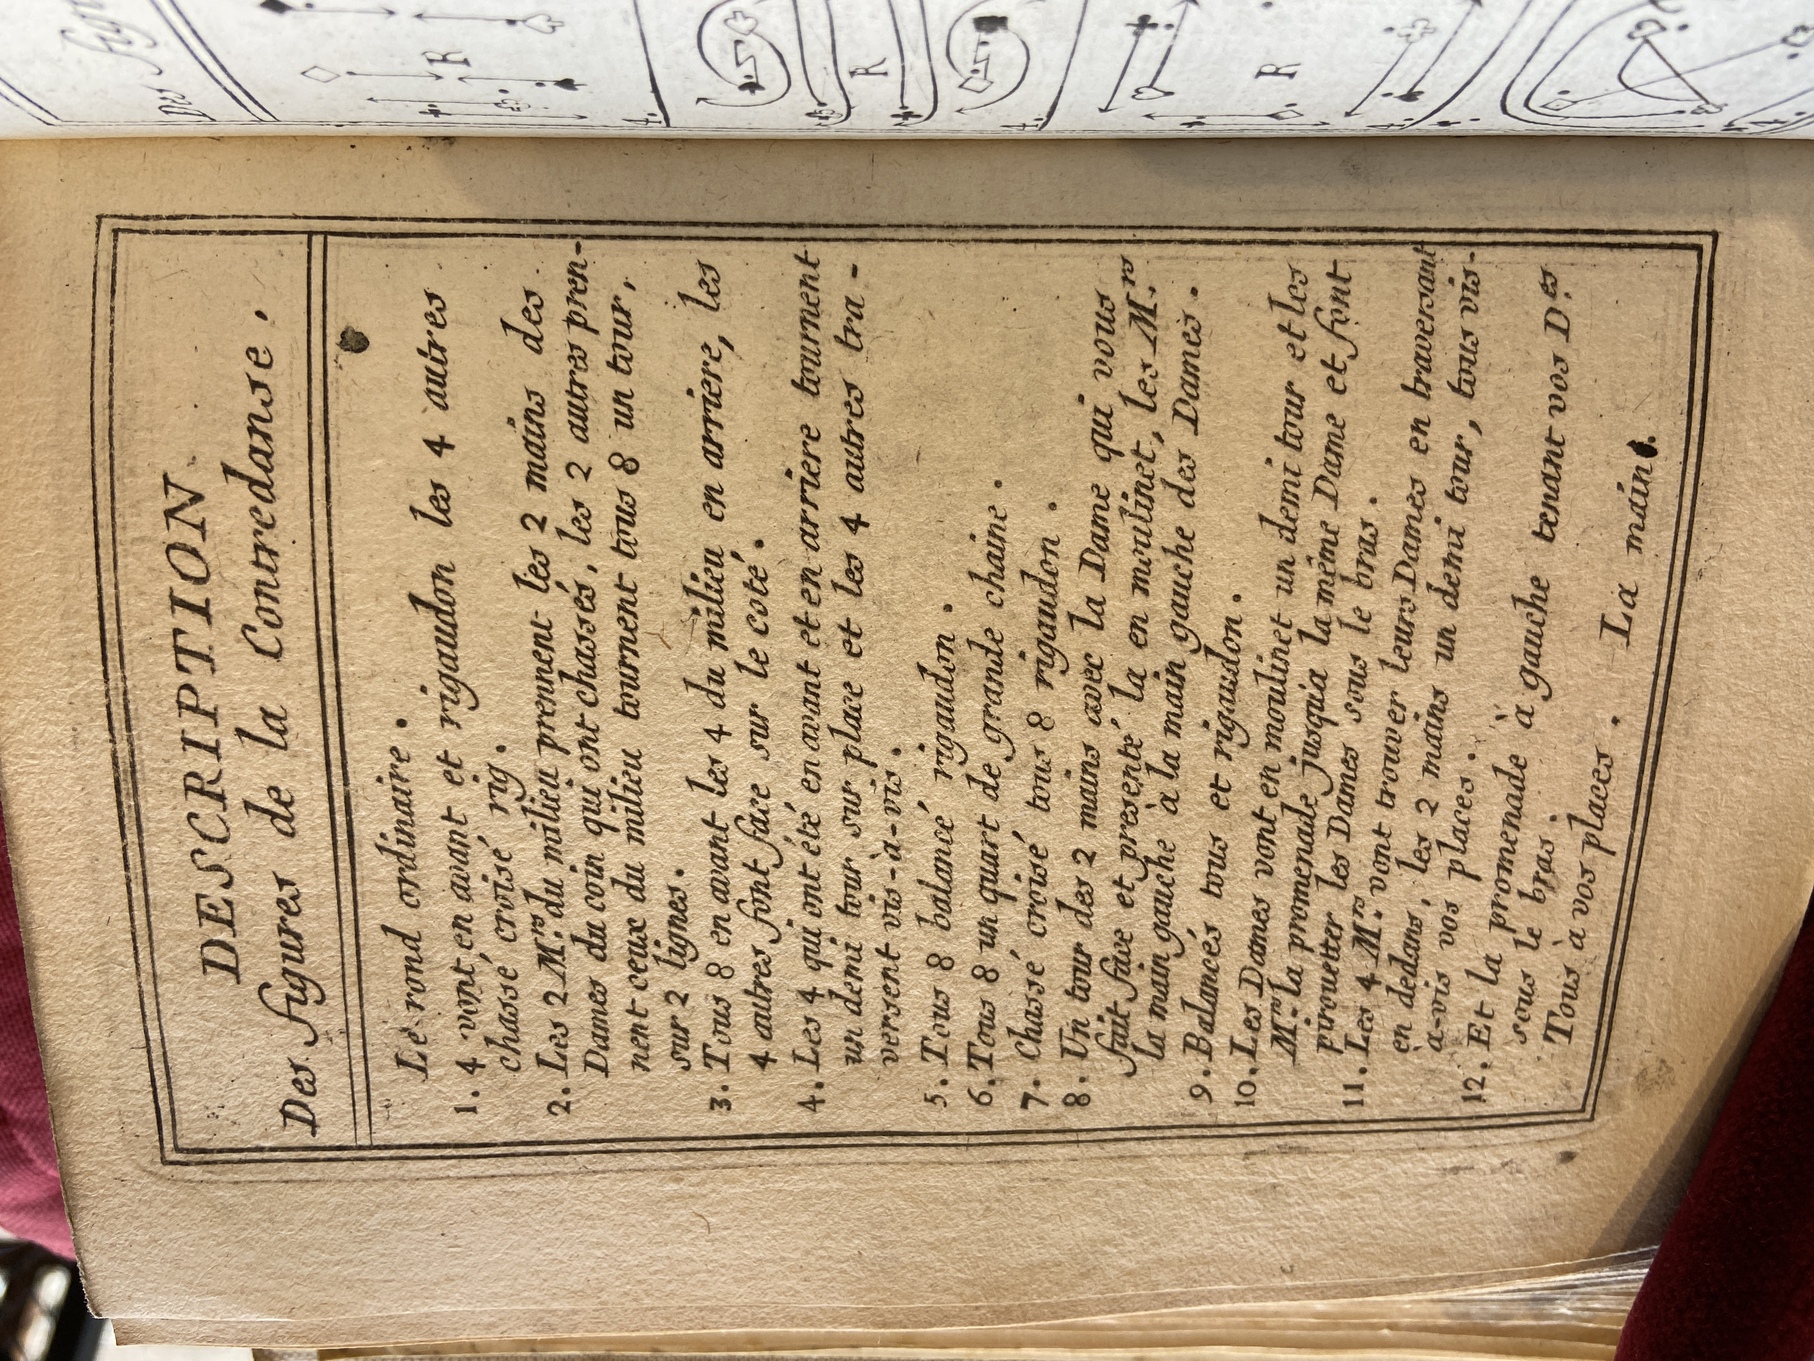 DESCRIPTION
Des figures de la Contredanse.
Le rond ordinaire.
1. 4 vont en avant et rigaudon les 4 autres
chassé croisé rig.
2. Les 2 Mrs. du milieu prennent les 2 mains des
Dames du coin qui ont chassés, les 2 autres pren-
nent ceux du milieu tournent tous 8 un tour,
sur 2 lignes.
3. Tous 8 en avant les 4 du milieu en arriere, les
4 autres font face sur le coté.
4. Les 4 qui ont été en avant et en arriere tournent
un demi tour sur place et les 4 autres tra-
versent vis-à-vis.
5. Tous 8 balancé rigaudon.
6. Tous 8 un quart de grande chaine.
7. Chassé croisé tous 8 rigaudon.
8. Un tour des 2 mains avec la Dame qui vous
fait face et presenté la en moulinet, les Mrs.
la main gauche à la main gauche des Dames.
9. Balancés tous et rigaudon.
10. Les Dames vont en moulinet un demi tour et les
Mrs. la promenade jusqu'a la même Dame et font
pirouetter les Dames sous le bras.
11. Les 4 Mrs. vont trouver leurs Dames en traversant
en dedans, les 2 mains un demi tour, tous vis-
a-vis vos places.
12. Et la promenade à gauche tenant vos Des.
sous le bras.
Tous à vos places. La main.
Des figu
R
4.
R
4.
R
4.